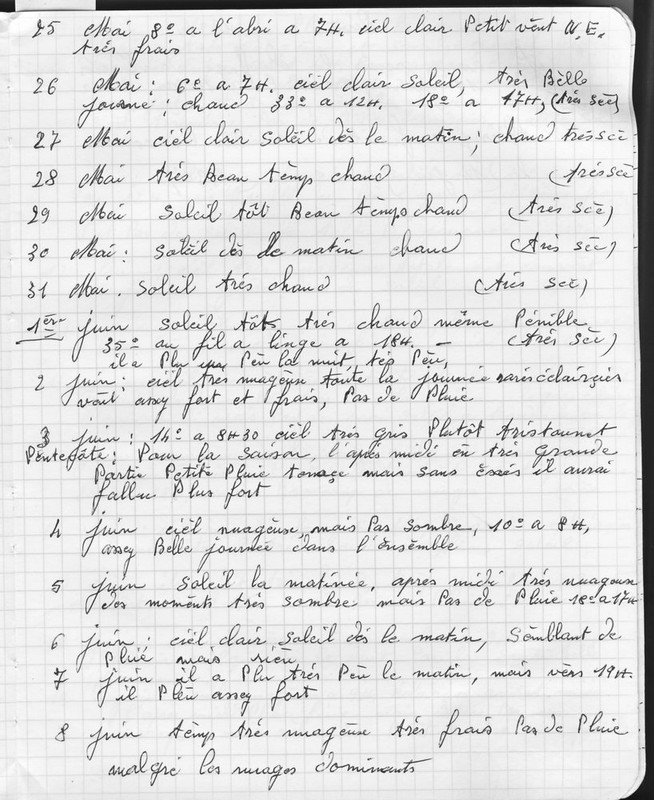 25 Mai 8º a l'abri a 7H. ciel clair Petit vent N.E.
très frais
26 Mai : 6º a 7H. ciel clair Soleil, très Bèlle
journé ; chaud 33º a 12H. 18º a 17H, (très sèc)
27 Mai ciel clair Soleil dès le matin ; chaud très sèc
28 Mai très Beau tèmp chaud (très sèc
29 Mai Soleil tôt Beau tèmps chaud (très sèc)
30 Mai : Soleil dès le matin chaud (très sèc)
31 Mai . Soleil très chaud (très sèc)
1èr juin Soleil tôt très chaud même Pénible
35º au fil a linge a 18H. – (très sèc)
il a Plu Pèu la nuit, tès Pèu,
2 juin : ciel très nuageuse toute la journée rares éclaircies
vènt assey fort et frais, Pas de Pluie
3 juin : 14º a 8H30 cièl très gris Plutôt tristounet
Pèntecôte : Pour la saison, l'après midi èn très grande
Partie Petite Pluie tenaçe mais sans èxsés il aurai
fallu Plus fort
4 juin cièl nuageuse, mais Pas sombre, 10º a 8H,
assey Belle journée dans l'ènsèmble
5 juin Soleil la matinée, après midi très nuageuse
des moments très sombre mais Pas de Pluie 18º a 17H
6 juin : ciel clair Soleil dès le matin, Sèmblant de
Pluie mais rièn
7 juin il a Plu très Pèu le matin, mais vèrs 19H.
il Plèu assey fort
8 juin tèmps très nuageuse très frais Pas de Pluie
malgré les nuages dominants